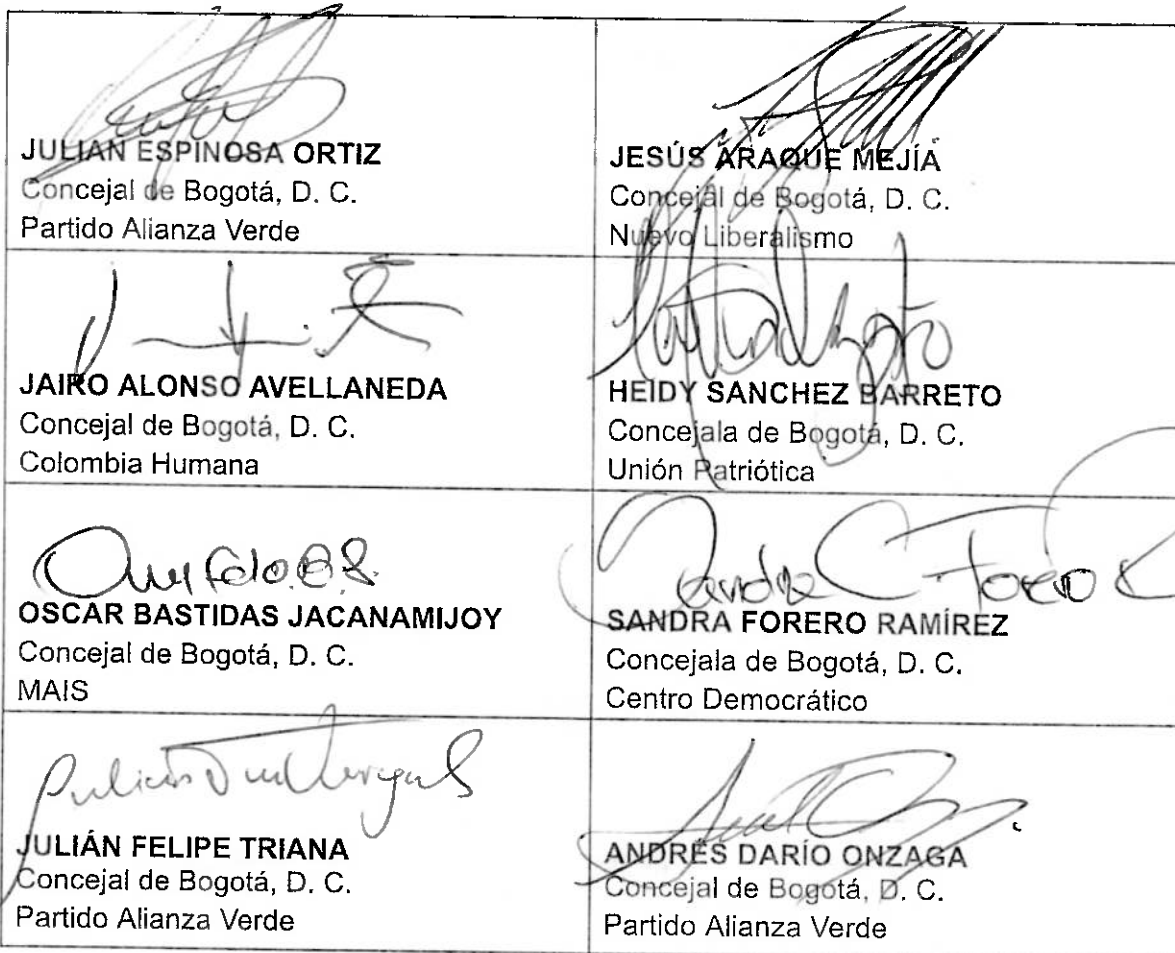 JULIAN ESPINOSA ORTIZ
Concejal de Bogotá, D. C.
Partido Alianza Verde
JESÚS ARAQUE MEJÍA
Concejal de Bogotá, D. C.
Nuevo Liberalismo
JAIRO ALONSO AVELLANEDA
Concejal de Bogotá, D. C.
Colombia Humana
HEIDY SANCHEZ BARRETO
Concejala de Bogotá, D. C.
Unión Patriótica
OSCAR BASTIDAS JACANAMIJOY
Concejal de Bogotá, D. C.
MAIS
Sandra C Forero R
SANDRA FORERO RAMÍREZ
Concejala de Bogotá, D. C.
Centro Democrático
JULIÁN FELIPE TRIANA
Concejal de Bogotá, D. C.
Partido Alianza Verde
ANDRÉS DARÍO ONZAGA
Concejal de Bogotá, D. C.
Partido Alianza Verde